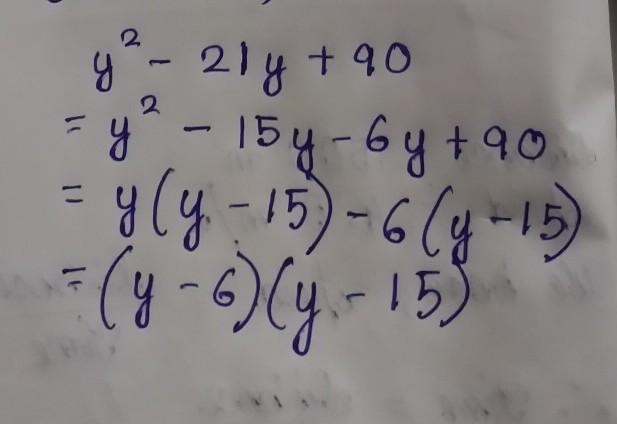 y² - 21y + 90
= y² - 15y - 6y + 90
= y(y - 15) - 6(y - 15)
= (y - 6)(y - 15)